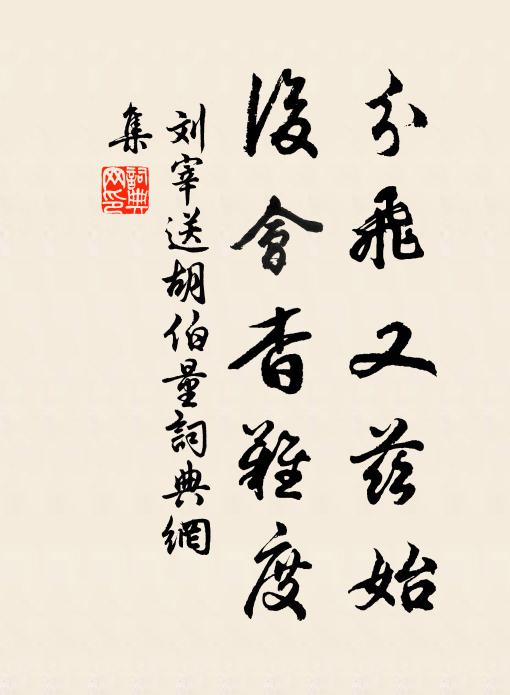 分飛又茲始
後會杳難度
刘宰送胡伯量詞典網
集
詞典網印